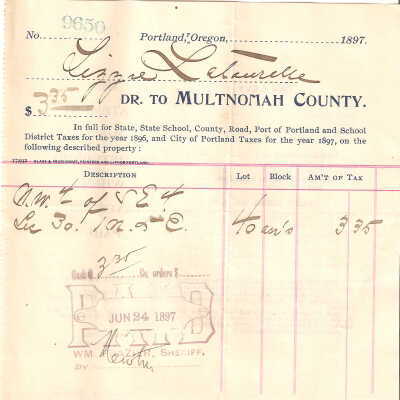 No. 9650 Portland, Oregon, 1897.
Lizzie Latourelle
$ 3 35 DR. TO MULTNOMAH COUNTY.
In full for State, State School, County, Road, Port of Portland and School
District Taxes for the year 1896, and City of Portland Taxes for the year 1897, on
the following described property:
DESCRIPTION Lot Block AM'T OF TAX
N.W.4 of S E 4
Sec 30. 1 N. 5 E. 40 acrs 3 35
3 35 Co. orders $
PAID
JUN 24 1897
WM. SHERIFF.
BY